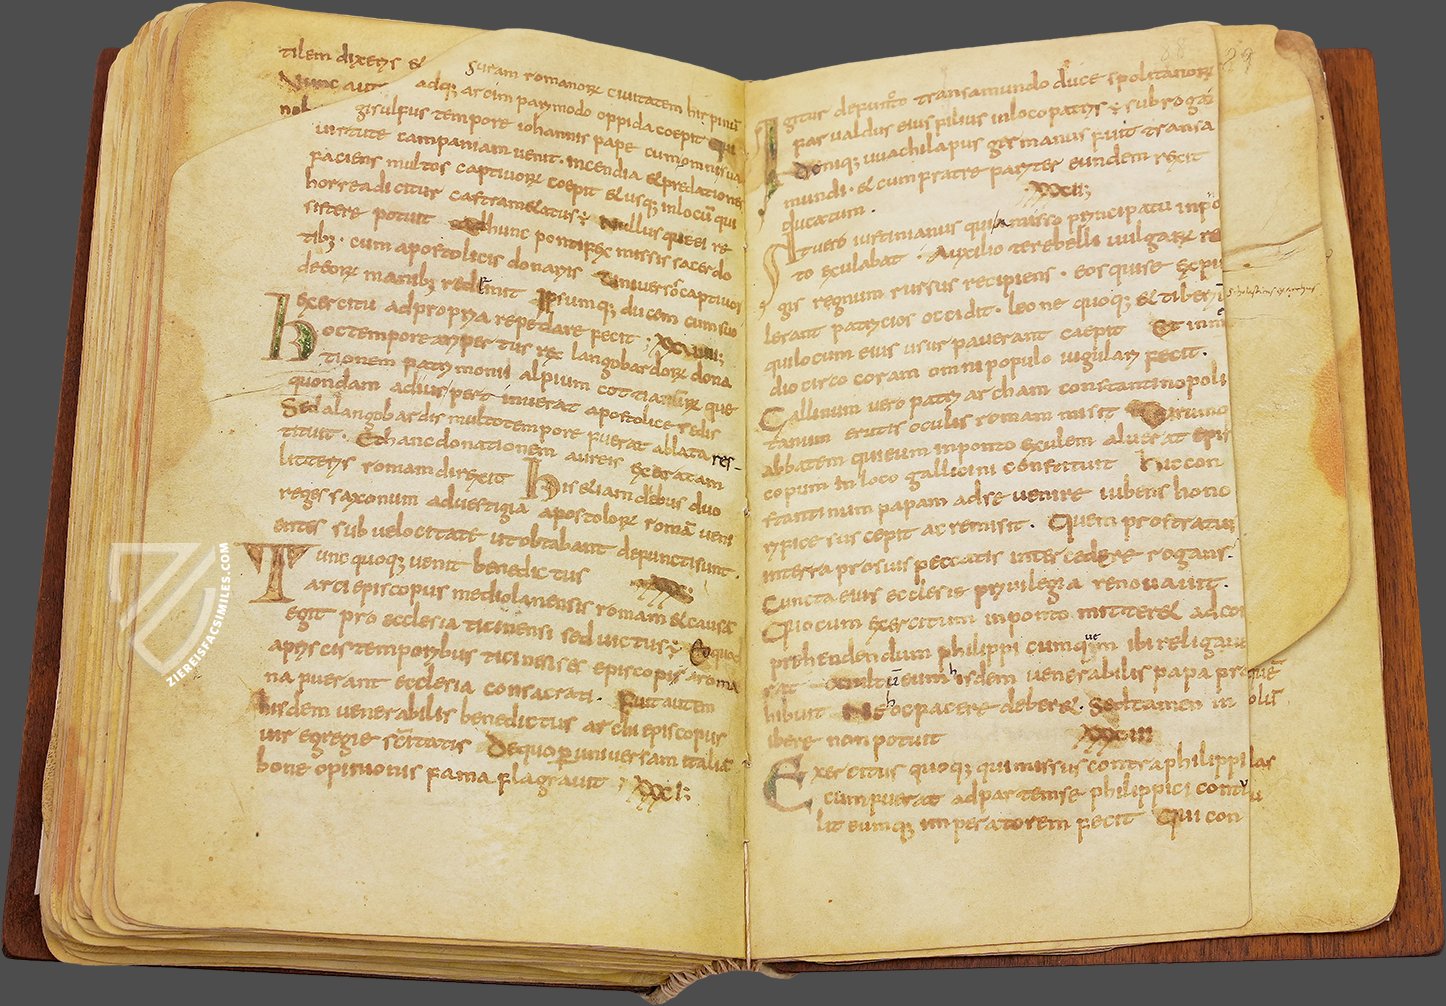 tilem dixerys &
Nunc aut
nob
Suram romanorum ciuitatem hirpinum
adq; arcim parymodo oppida coepit qui
gisulfus tempore iohannis pape cum omni sua
uirtute campaniam uenit. incendia & predationes
faciens multos captiuorum coepit & usq; in locum qui
horrea dicitur castram&atus; Nullus qui ei re
sistere potuit hunc pontifex missis sacerdo
tib; cum apostolicis donariis uniuersos captiuos
deeorum manib; redemit Ipsumq; ducem cum suo
exercitu ad propria repedare fecit XXVIII;
hoc tempore aripertus rex langobardorum dona
tionem patrimonii alpium cottiarum que
quondam ad ius pertinuerat apostolice sedis
Sed a langobardis multo tempore fuerat ablata res-
tituit. Et hanc donationem aureis exaratam
litteris romam direxit His etiam diebus duo
reges saxonum ad uestigia apostolorum romā ueni
entes sub uelocitate ut obtabant defuncti sunt.
Tunc quoq; uenit benedictus
archiepiscopus mediolanensis romam & causā
egit pro ecclesia ticinensi sed uictus; Eo quod
a priscis temporibus ticinenses episcopi a roma
na fuerant ecclesia consacrati. Fuit autem
hisdem uenerabilis benedictus archiepiscopus
uir egregie scitatis De quo p uniuersam italiā
bone opinionis fama flagrauit XXXI;
88
29
Igitur defuncto transamundo duce spolitanorum
faroaldus eius filius in loco patris subrogat
Deniq; uuachilapus germanus fuit transa
mundi. & cum fratre pariter eundem recit
XXXII;
ducatum.
At uero iustinianus qui amisso principatu in po
to exulabat. Auxilio terebelli uulgarum re
gis regnum rursus recipiens. eos qui se expu
lerant patricios occidit. leone quoq; & tiberiu
qui locum eius usurpauerant caepit Et in me
dio circo coram omni populo iugulari fecit.
Callinum uero patriarcham constantinopoli
tanum erutis oculis romam misit
abbatem qui eum in ponto exulem aluerat epis
copum in loco gallicini constituit hic con
stantinum papam ad se uenire iubens hono
rifice suscepit ac remisit. Quem prostratus
in terra pro suis peccatis intercedere rogans.
Cuncta eius ecclesie priuilegia renouauit.
Qui cum exercitum in ponto mitter& ad con
prehendendum philippicum quem ibi religaue
rat multum eum hisdem uenerabilis papa prohi
hibuit Ne hoc facere deber&. Sed tamen in
ibere non potuit
XXXIII
Exercitus quoq; qui missus contra philippi
cum fuerat ad partem se philippici contu
lit eumq; imperatorem fecit Qui con